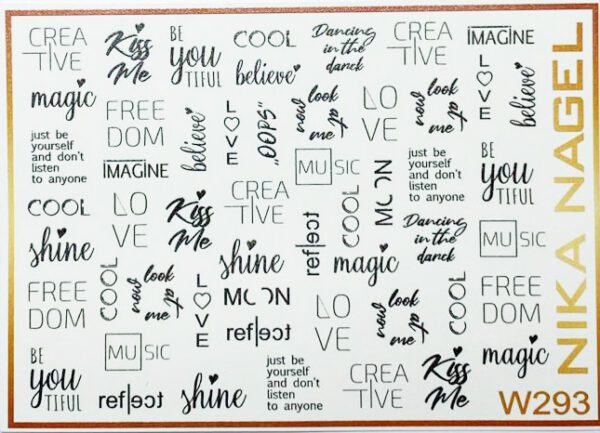 CREA
TIVE
Kiss
Me
BE
you
TIFUL
COOL
believe
Dancing
in the
darck
CREA
TIVE
IMAGINE
magic
FREE
DOM
believe
LOVE
„OOPS”
now look at me
LO
VE
now look at me
LOVE
believe
just be
yourself
and don't
listen
to anyone
IMAGINE
MUSIC
MOON
just be
yourself
and don't
listen
to anyone
BE
you
TIFUL
COOL
LO
VE
Kiss
Me
CREA
TIVE
reflect
COOL
Dancing
in the
darck
MUSIC
shine
shine
magic
FREE
DOM
COOL
now look at me
LOVE
MOON
reflect
LO
VE
now look at me
COOL
FREE
DOM
BE
you
TIFUL
MUSIC
reflect
shine
just be
yourself
and don't
listen
to anyone
CREA
TIVE
Kiss
Me
magic
NIKA NAGEL
W293